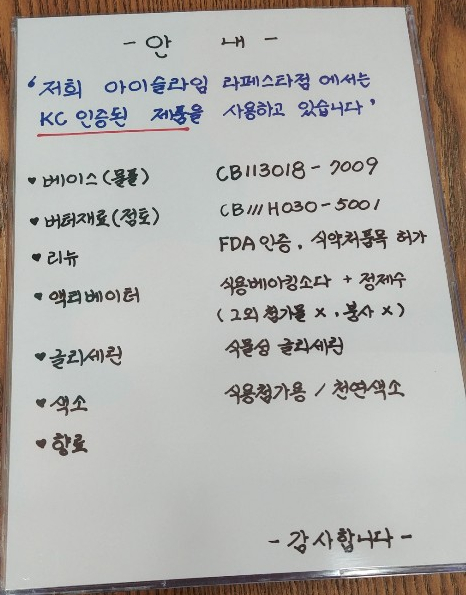 - 안 내 -
‘ 저희 아이슬라임 라페스타점 에서는
KC 인증된 제품을 사용하고 있습니다 ’
♥ 베이스 (물풀) CB113018 - 7009
♥ 버터재료 (점토) CB111H030 - 5001
♥ 리뉴 FDA 인증, 식약처품목 허가
♥ 액티베이터 식용베이킹소다 + 정제수
( 그외 첨가물 x , 붕사 x )
♥ 글리세린 식물성 글리세린
♥ 색소 식용첨가용 / 천연색소
♥ 향료
- 감사합니다 -